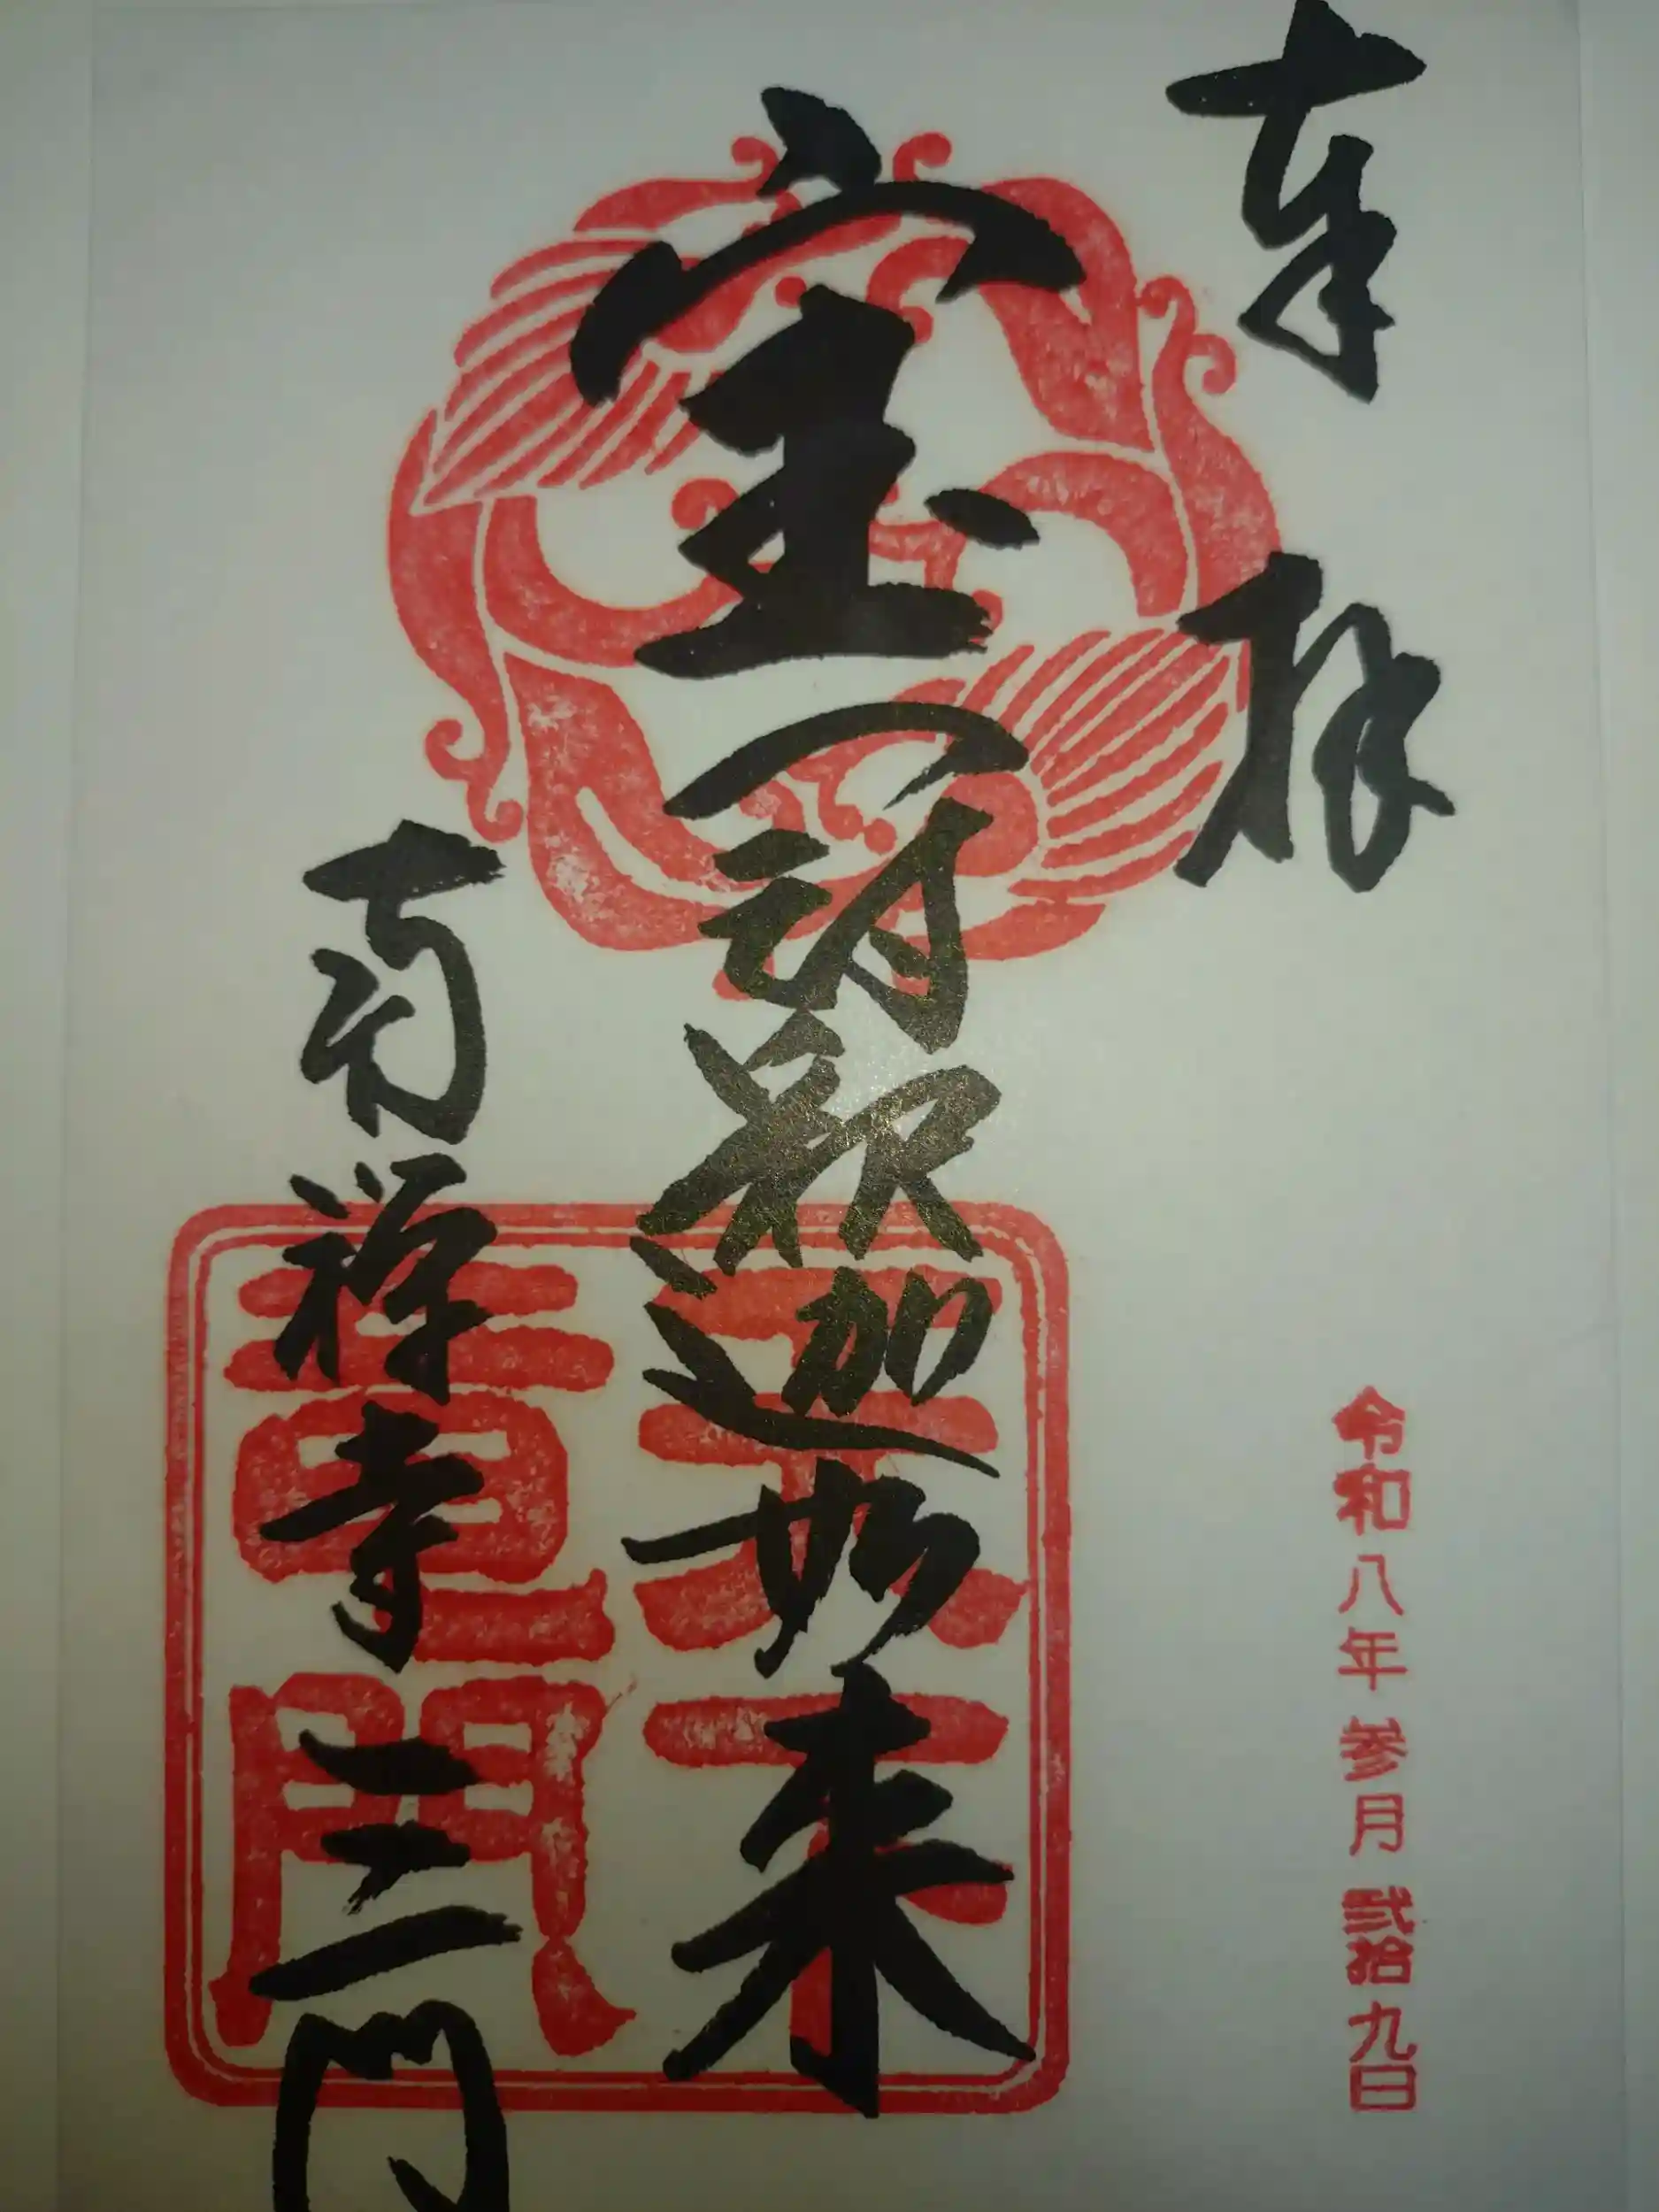 奉拝
令和八年参月弐拾九日
宝冠釈迦如来
南禅寺三門
天下
竜門